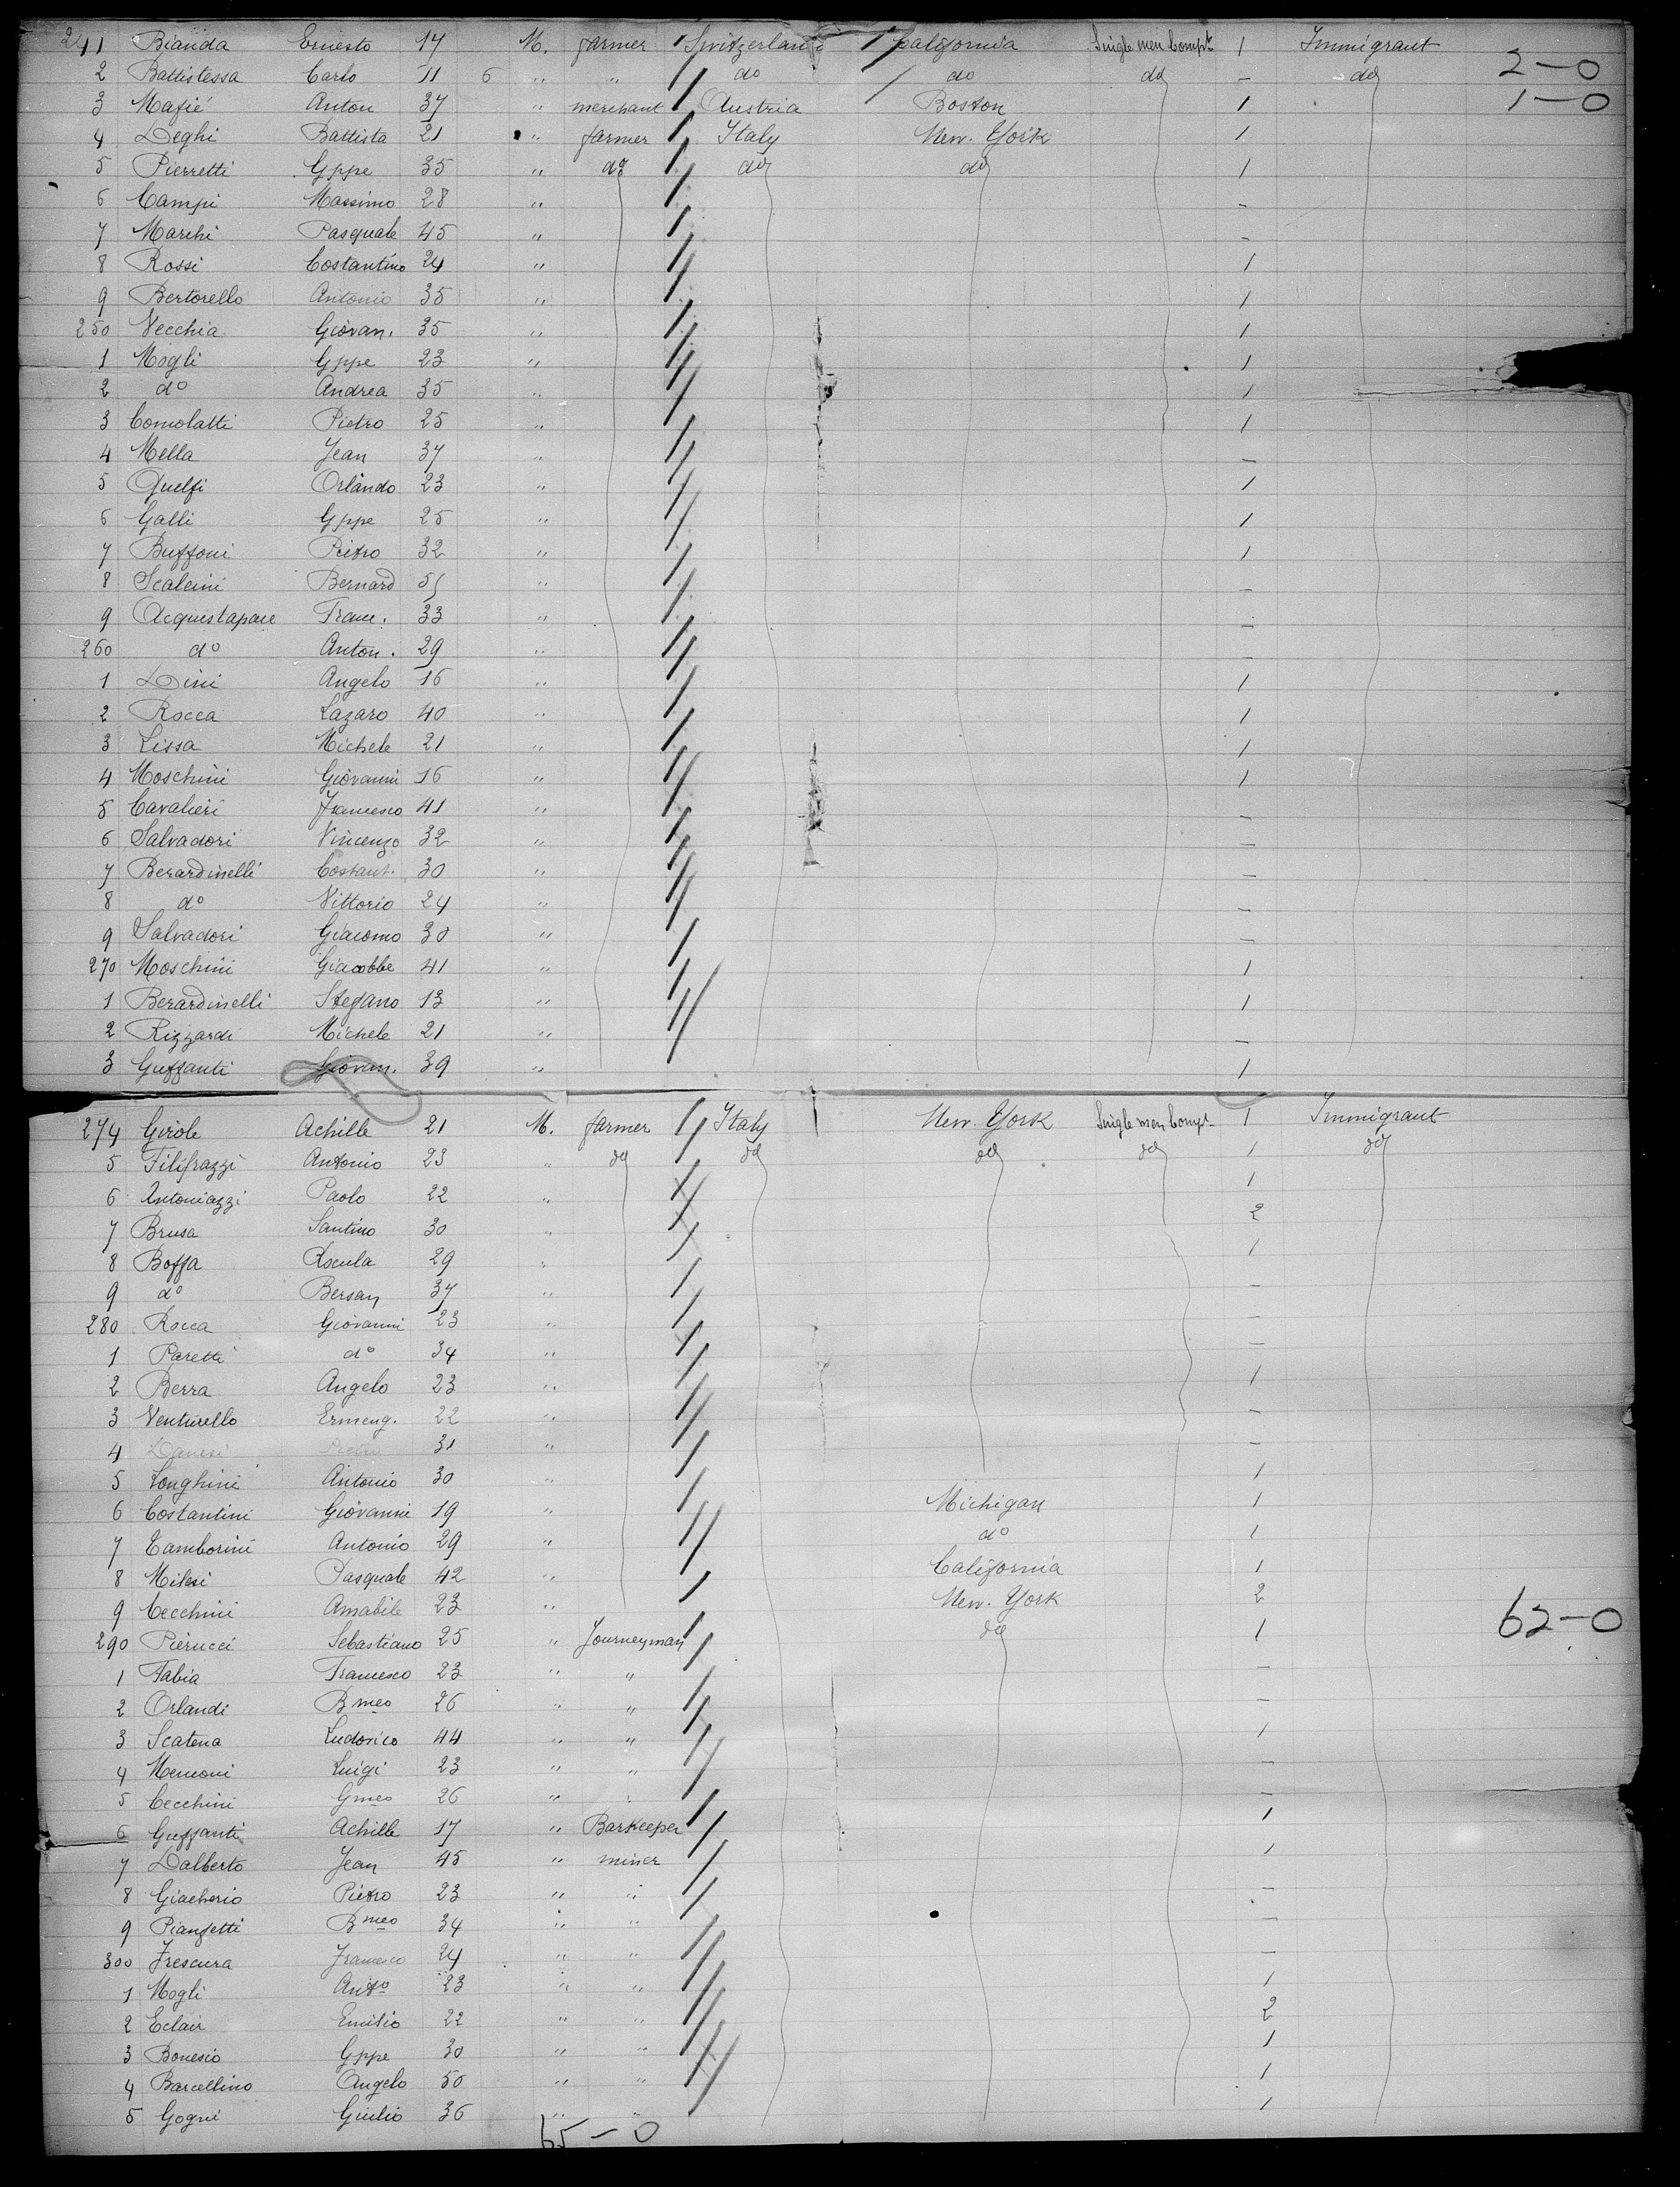 241 Bianda Ernesto 17 M. farmer Switzerland California Single men Compt 1 Immigrant
2 Battistessa Carlo 11 6 " " do do do – do 2–0
3 Mafié Anton 37 " merchant Austria Boston 1 1–0
4 Deghi Battista 21 " farmer Italy New. York 1
5 Pierretti Gppe 35 " do do do 1
6 Campi Massimo 28 " –
7 Marchi Pasquale 45 " –
8 Rossi Costantino 24 " 1
9 Bertorello Antonio 35 " 1
250 Vecchia Giovan. 35 " 1
1 Mogli Gppe 23 " 1
2 do Andrea 35 " 1
3 Comolatti Pietro 25 " 1
4 Mella Jean 37 " –
5 Guelfi Orlando 23 " 1
6 Galli Gppe 25 " 1
7 Buffoni Pietro 32 " 1
8 Scalcini Bernard 51 " –
9 Acquistapace Franc. 33 " –
260 do Anton. 29 " –
1 Dini Angelo 16 " 1
2 Rocca Lazaro 40 " 1
3 Lissa Michele 21 " 1
4 Moschini Giovanni 16 " 1
5 Cavalieri Francesco 41 " –
6 Salvadori Vincenzo 32 " –
7 Berardinelli Costant. 30 " –
8 do Vittorio 24 " –
9 Salvadori Giacomo 30 " –
270 Moschini Giacobbe 41 " 1
1 Berardinelli Stefano 13 " 1
2 Rizzardi Michele 21 " –
3 Guffanti Giovan. 39 " 1
274 Girole Achille 21 M. farmer Italy New. York Single men Compt. 1 Immigrant
5 Filifrazzi Antonio 23 " do do do do 1 do
6 Antoniazzi Paolo 22 " 1
7 Brusa Santino 30 " 2
8 Boffa Rocula 29 " 1
9 do Bersan 37 " –
280 Rocca Giovanni 23 " –
1 Paretti do 34 " –
2 Berra Angelo 23 " 1
3 Venturello Ermeng. 22 " –
4 Danesi 31 " –
5 Longhini Antonio 30 " 1
6 Costantini Giovanni 19 " Michigan 1
7 Tamborini Antonio 29 " do 1
8 Milesi Pasquale 42 " California 1
9 Cecchini Amabile 23 " New. York 2
290 Pierucci Sebastiano 25 " Journeyman do 1 62–0
1 Fabia Francesco 23 " " –
2 Orlandi Bmeo 26 " " –
3 Scatena Ludovico 44 " " 1
4 Menconi Luigi 23 " " –
5 Cecchini Gmeo 26 " " –
6 Guffanti Achille 17 " Barkeeper 1
7 Dalberto Jean 45 " miner 1
8 Giacherio Pietro 23 " " –
9 Pianfetti Bmeo 34 " " –
300 Frescura Francesco 24 " " –
1 Mogli Anto 23 " " 1
2 Eclair Emilio 22 " " 2
3 Bonesio Gppe 30 " " 1
4 Barcellino Angelo 50 " " 1
5 Gogni Giulio 36 " " 1
65–0